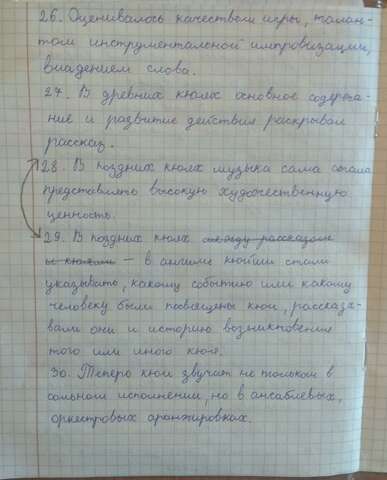 26. Оценивалось качеством игры, талан-
том инструментальной импровизации,
владением слова.
27. В древних кюях основное содержа-
ние и развитие действия раскрывал
рассказ.
28. В поздних кюях музыка сама стала
представлять высокую художественную
ценность.
29. В поздних кюях между рассказом
и кюями — в кюйши стали
указывать, какому событию или какому
человеку были посвещены кюи, рассказы-
вали они и историю возникновения
того или иного кюя.
30. Теперь кюи звучат не только в
сольном исполнении, но в ансаблевых,
оркестровых аранжировках.